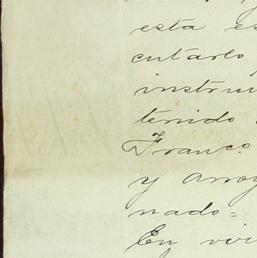 esta es
cutarlo
instru
tenido
Franco.
y arroy
nado=
En vir